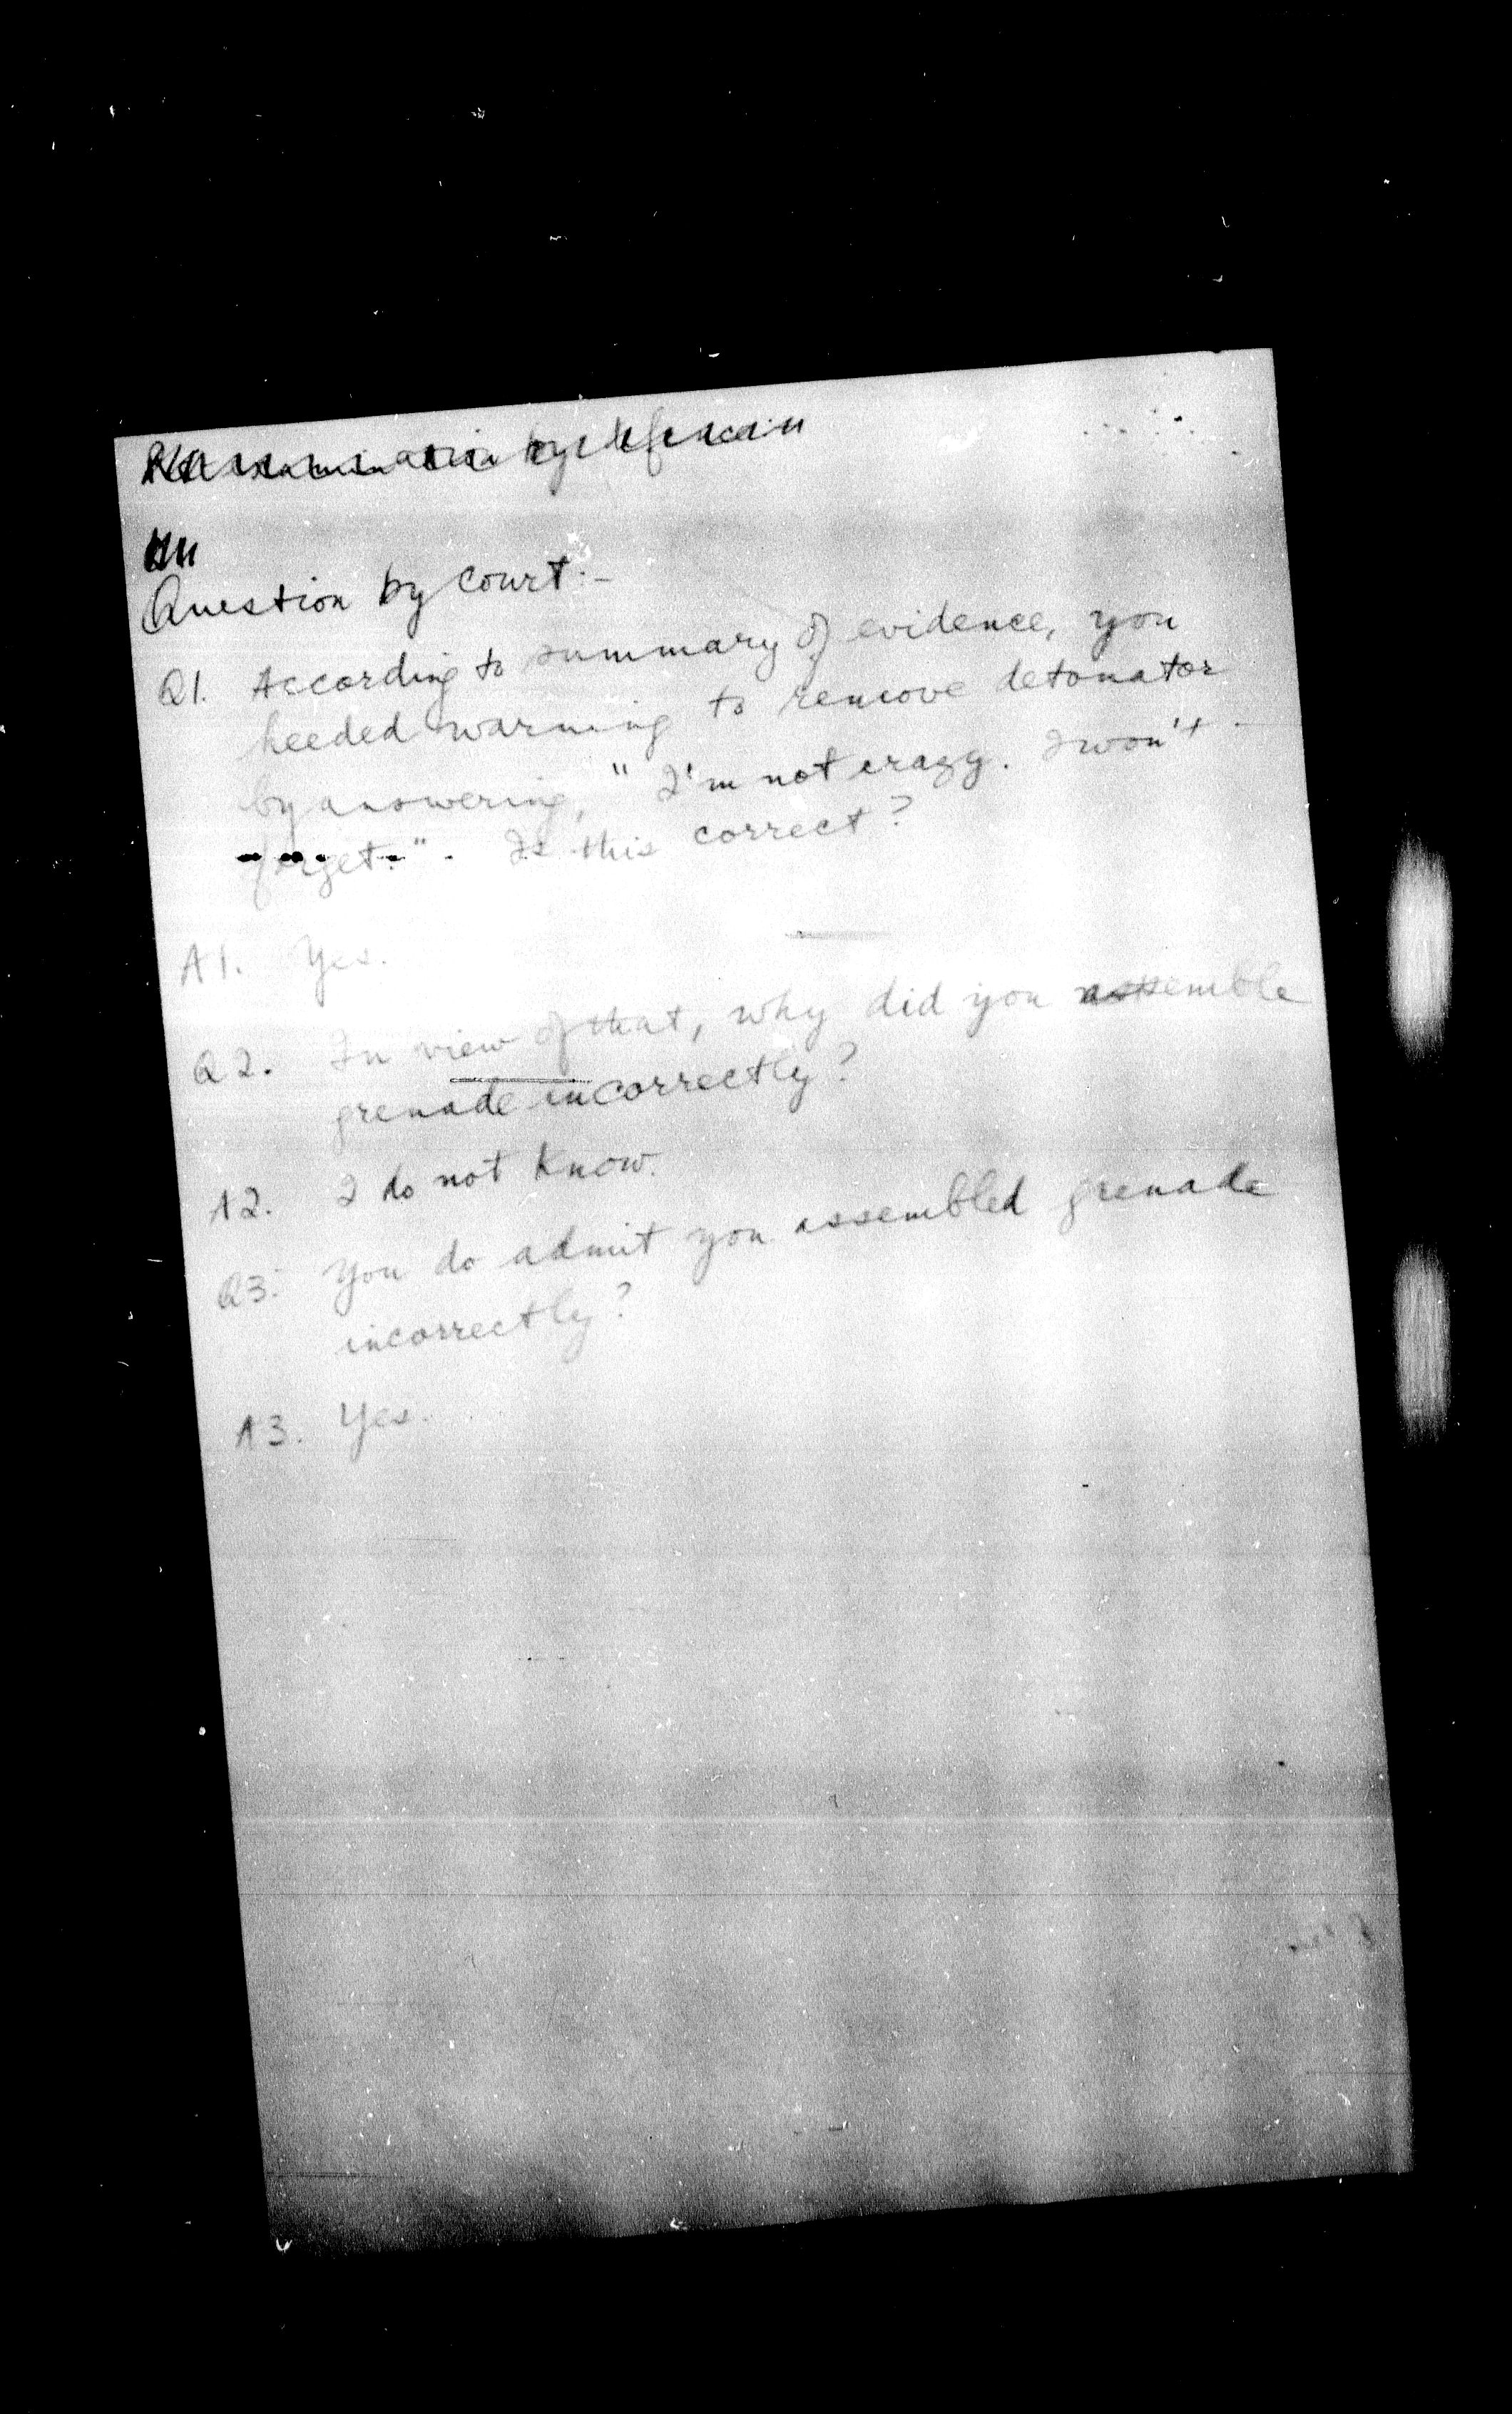 Question by court:-
Q1. According to summary of evidence, you
heeded warning to remove detonator
by answering, "I'm not crazy. I won't
forget.". Is this correct?
A1. Yes.
Q2. In view of that, why did you assemble
grenade incorrectly?
A2. I do not know.
Q3. You do admit you assembled grenade
incorrectly?
A3. Yes.